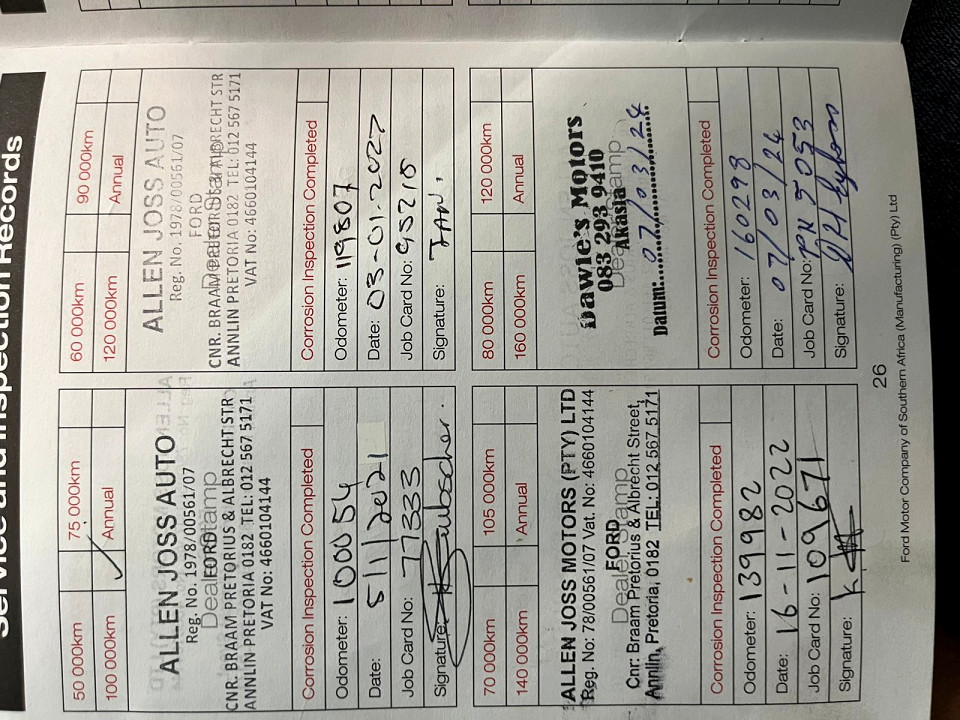 Service and Inspection Records
50 000km 75 000km
100 000km Annual
ALLEN JOSS AUTO
Reg. No. 1978/00561/07
FORD
Dealer Stamp
CNR. BRAAM PRETORIUS & ALBRECHT STR
ANNLIN PRETORIA 0182 TEL: 012 567 5171
VAT No: 4660104144
Corrosion Inspection Completed
Odometer: 100054
Date: 5/11/2021
Job Card No: 77333
Signature:
60 000km 90 000km
120 000km Annual
ALLEN JOSS AUTO
Reg. No. 1978/00561/07
FORD
Dealer Stamp
CNR. BRAAM PRETORIUS & ALBRECHT STR
ANNLIN PRETORIA 0182 TEL: 012 567 5171
VAT No: 4660104144
Corrosion Inspection Completed
Odometer: 119807
Date: 03-01-2022
Job Card No: 95210
Signature: JAN.
70 000km 105 000km
140 000km Annual
ALLEN JOSS MOTORS (PTY) LTD
Reg. No: 78/00561/07 Vat. No: 4660104144
FORD
Dealer Stamp
Cnr: Braam Pretorius & Albrecht Street,
Annlin, Pretoria, 0182 TEL: 012 567 5171
Corrosion Inspection Completed
Odometer: 139982
Date: 16-11-2022
Job Card No: 109671
Signature:
80 000km 120 000km
160 000km Annual
Dawie's Motors
083 293 9410
Dealer Stamp
Akasia
Datum: 07/03/24
Corrosion Inspection Completed
Odometer: 160298
Date: 07/03/24
Job Card No: PN 5053
Signature:
26
Ford Motor Company of Southern Africa (Manufacturing) (Pty) Ltd